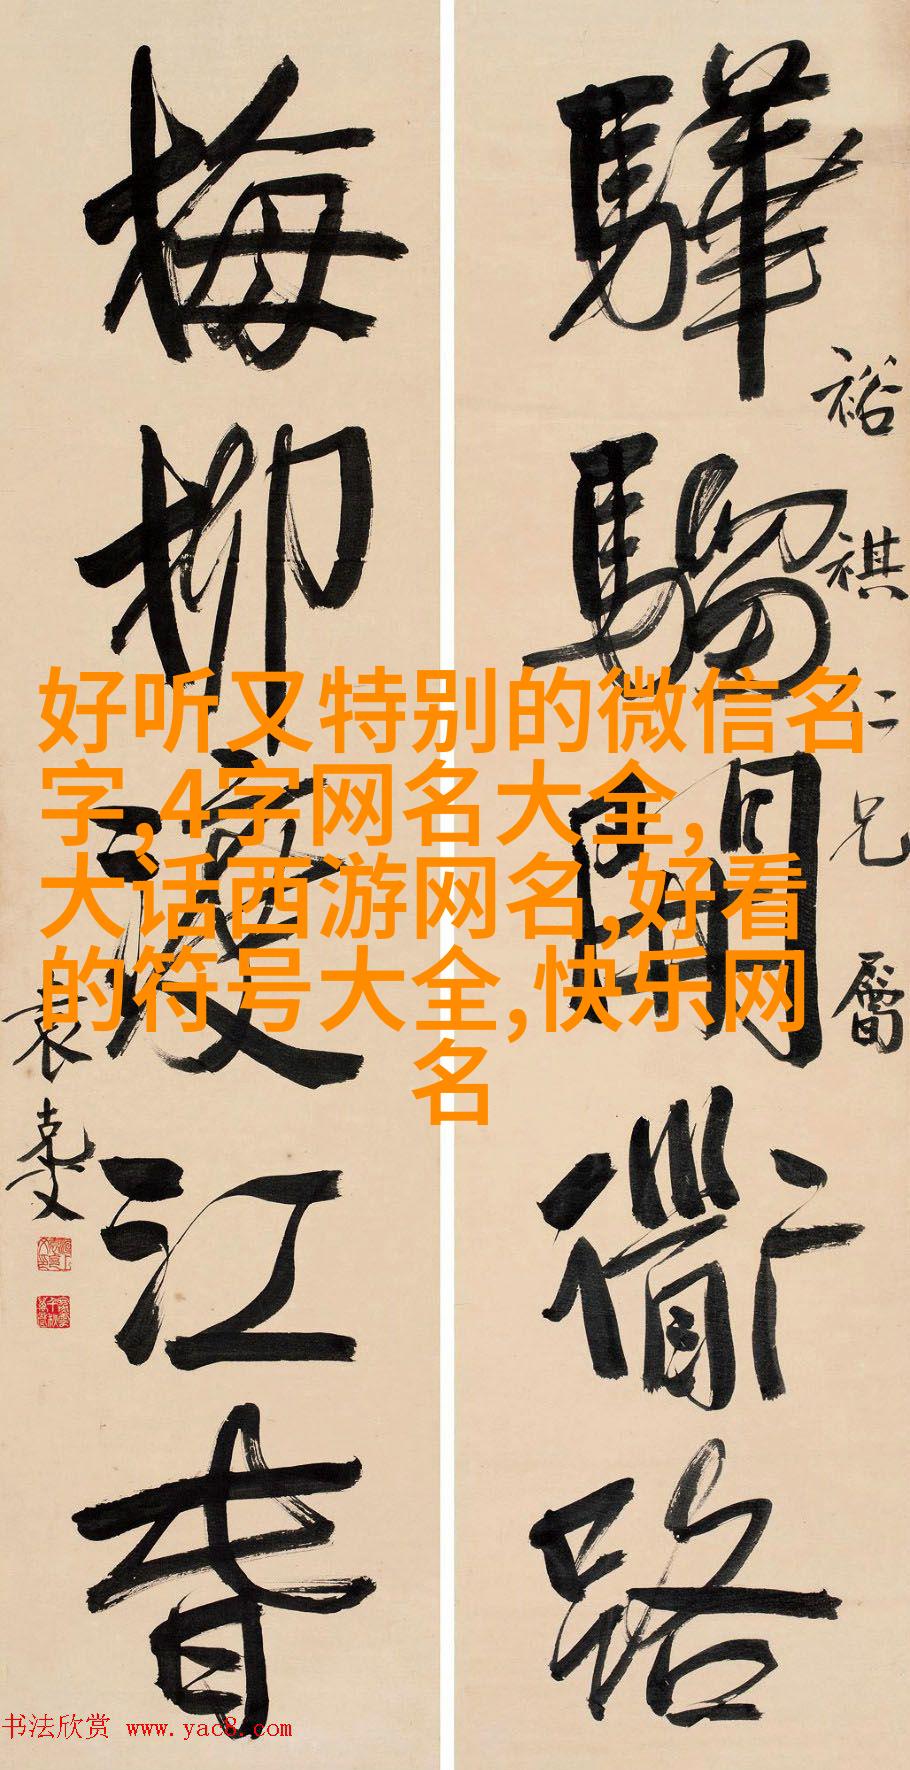 驊騮開衜路
裕祺仁兄屬
梅柳渡江春
袁克文
好听又特别的微信名
字,4字网名大全,
大话西游网名,好看
的符号大全,快乐网
名
书法欣赏 www.yac8.com